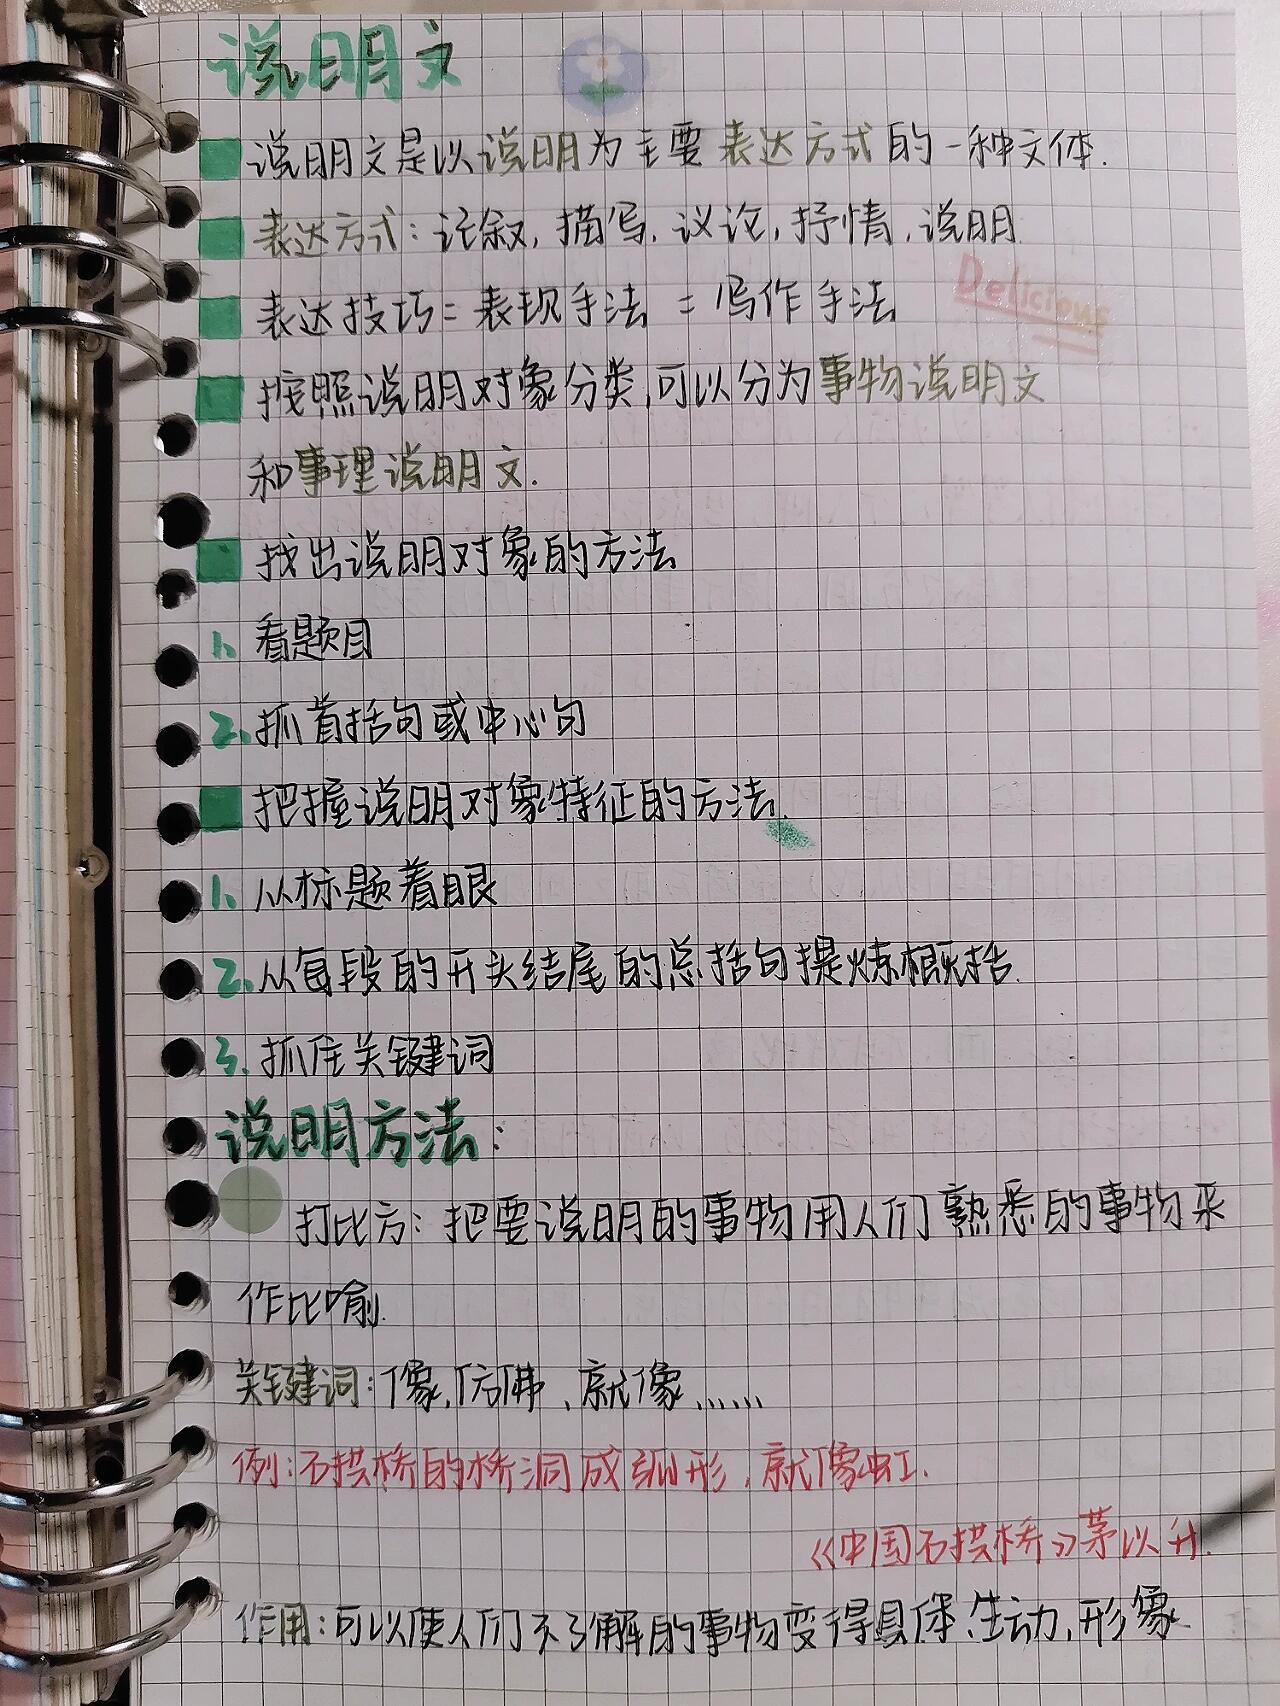 说明文
说明文是以说明为主要表达方式的一种文体.
表达方式: 记叙, 描写, 议论, 抒情, 说明
表达技巧=表现手法 = 写作手法
Delicious
按照说明对象分类,可以分为事物说明文
和事理说明文.
找出说明对象的方法
1. 看题目
2. 抓首括句或中心句
把握说明对象特征的方法.
1. 从标题着眼
2. 从每段的开头结尾的总括句提炼概括.
3. 抓住关键词
说明方法:
打比方: 把要说明的事物用人们熟悉的事物来
作比喻.
关键词: 像, 仿佛、就像......
例: 石拱桥的桥洞成弧形, 就像虹.
《中国石拱桥》茅以升.
作用: 可以使人们不了解的事物变得具体、生动, 形象